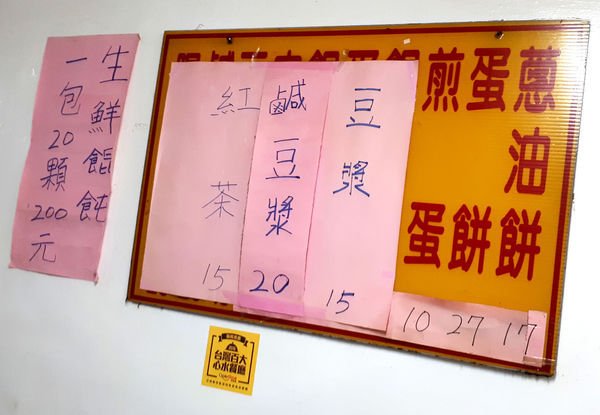 蔥油餅
17
蛋餅
27
煎蛋
10
豆漿
15
鹹豆漿
20
紅茶
15
生鮮餛飩
一包20顆200元
台灣百大
心水餐廳